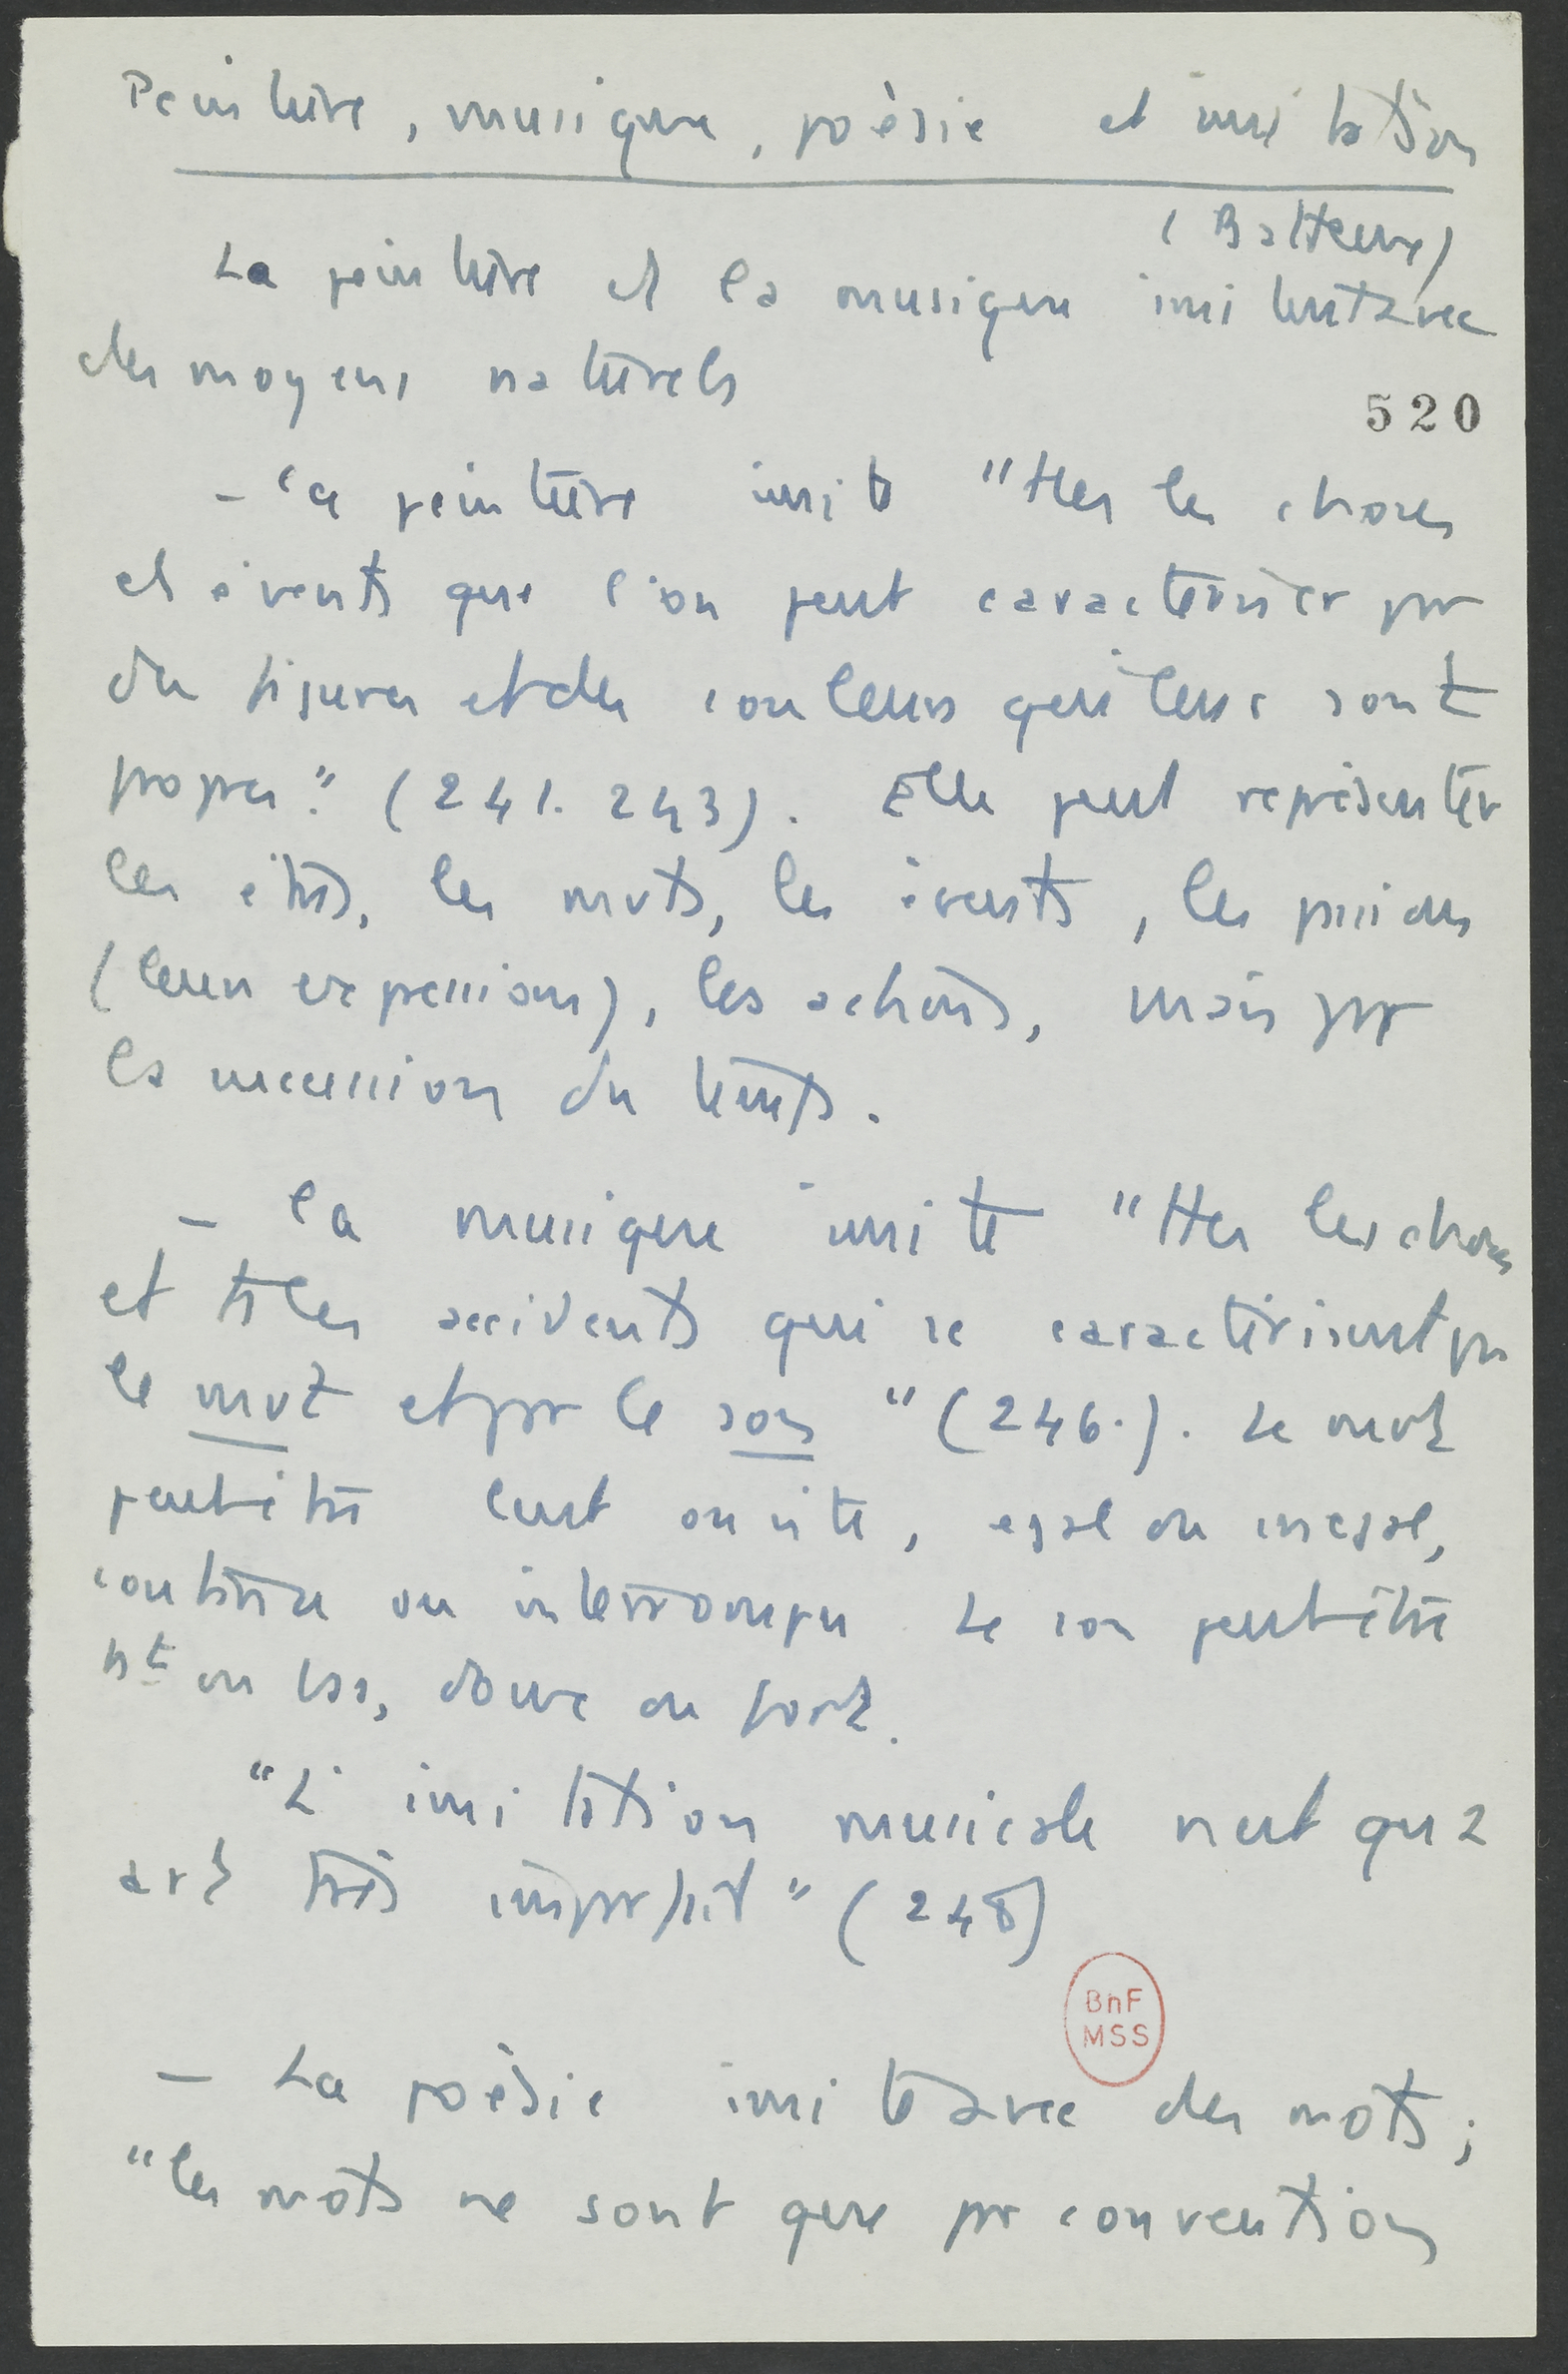 Peinture, musique, poésie et imitation
(Batteux)
La peinture et la musique imitent avec
des moyens naturels
520
- la peinture imite "ttes les choses
et évents que l'on peut caractériser par
des figures et des couleurs qui leur sont
propres." (241. 243). Elle peut représenter
les êtres, les mvts, les évents, les passions
(leurs expressions), les actions, mais pas
la succession du temps.
- la musique imite "ttes les choses
et ts les accidents qui se caractérisent par
le mvt et par le son" (246.). Le mvt
peut être lent ou vite, égal ou inégal,
continu ou interrompu. Le son peut être
ht ou bas, doux ou fort.
"L'imitation musicale n'est qu'à
art très imparfait" (248)
BnF
MSS
- La poésie imite avec des mots;
"les mots ne sont que par convention